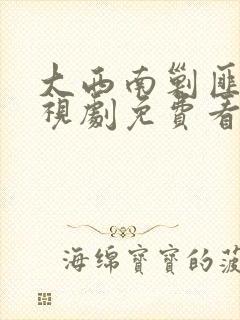 大西南剿匪
視劇免費看
海绵寶寶的菠